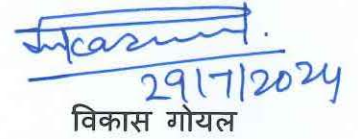 29/7/2024
विकास गोयल